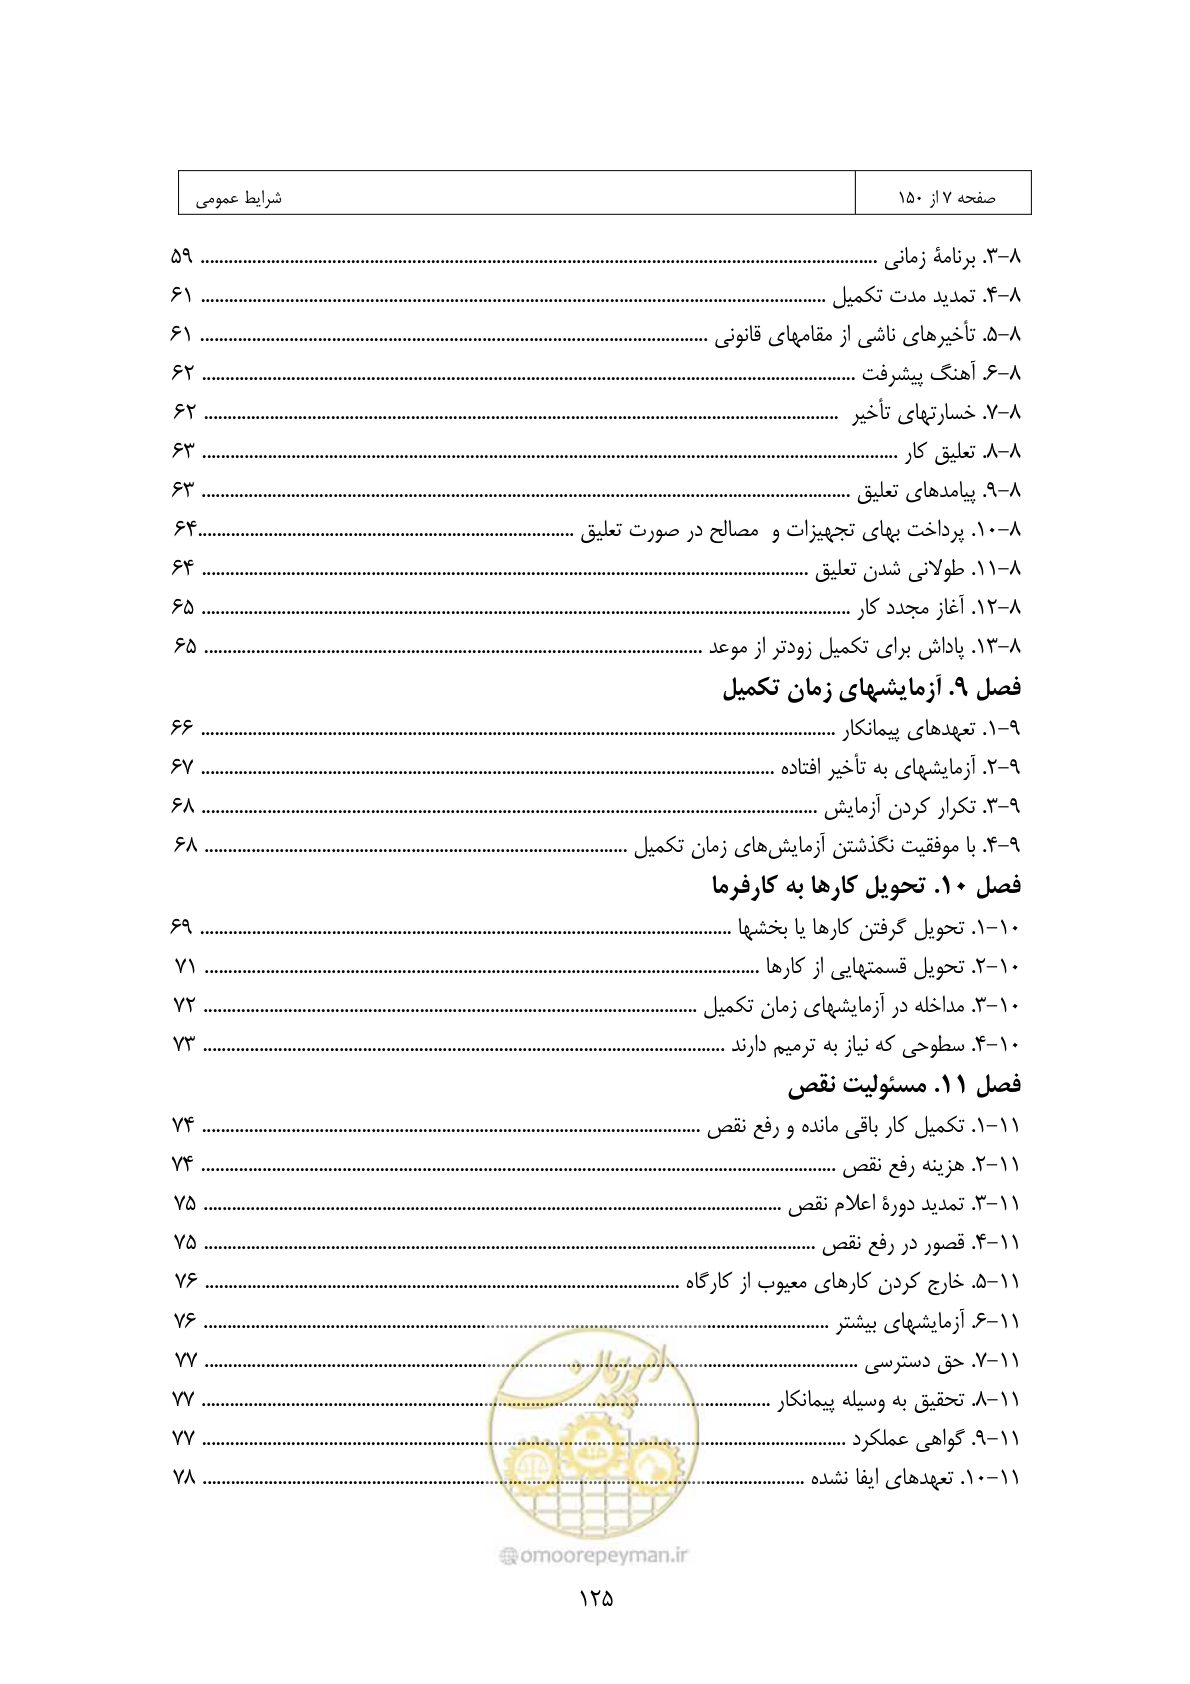 صفحه ۷ از ۱۵۰ شرایط عمومی
۸-۳. برنامهٔ زمانی ........ ۵۹
۸-۴. تمدید مدت تکمیل ........ ۶۱
۸-۵. تأخیرهای ناشی از مقامهای قانونی ........ ۶۱
۸-۶. آهنگ پیشرفت ........ ۶۲
۸-۷. خسارتهای تأخیر ........ ۶۲
۸-۸. تعلیق کار ........ ۶۳
۸-۹. پیامدهای تعلیق ........ ۶۳
۸-۱۰. پرداخت بهای تجهیزات و مصالح در صورت تعلیق ........ ۶۴
۸-۱۱. طولانی شدن تعلیق ........ ۶۴
۸-۱۲. آغاز مجدد کار ........ ۶۵
۸-۱۳. پاداش برای تکمیل زودتر از موعد ........ ۶۵
فصل ۹. آزمایشهای زمان تکمیل
۹-۱. تعهدهای پیمانکار ........ ۶۶
۹-۲. آزمایشهای به تأخیر افتاده ........ ۶۷
۹-۳. تکرار کردن آزمایش ........ ۶۸
۹-۴. با موفقیت نگذشتن آزمایش‌های زمان تکمیل ........ ۶۸
فصل ۱۰. تحویل کارها به کارفرما
۱۰-۱. تحویل گرفتن کارها یا بخشها ........ ۶۹
۱۰-۲. تحویل قسمتهایی از کارها ........ ۷۱
۱۰-۳. مداخله در آزمایشهای زمان تکمیل ........ ۷۲
۱۰-۴. سطوحی که نیاز به ترمیم دارند ........ ۷۳
فصل ۱۱. مسئولیت نقص
۱۱-۱. تکمیل کار باقی مانده و رفع نقص ........ ۷۴
۱۱-۲. هزینه رفع نقص ........ ۷۴
۱۱-۳. تمدید دورهٔ اعلام نقص ........ ۷۵
۱۱-۴. قصور در رفع نقص ........ ۷۵
۱۱-۵. خارج کردن کارهای معیوب از کارگاه ........ ۷۶
۱۱-۶. آزمایشهای بیشتر ........ ۷۶
۱۱-۷. حق دسترسی ........ ۷۷
۱۱-۸. تحقیق به وسیله پیمانکار ........ ۷۷
۱۱-۹. گواهی عملکرد ........ ۷۷
۱۱-۱۰. تعهدهای ایفا نشده ........ ۷۸
امور پیمان
@omoorepeyman.ir
۱۲۵